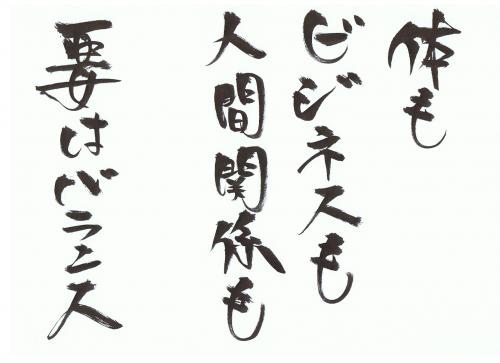 体も
ビジネスも
人間関係も
要はバランス